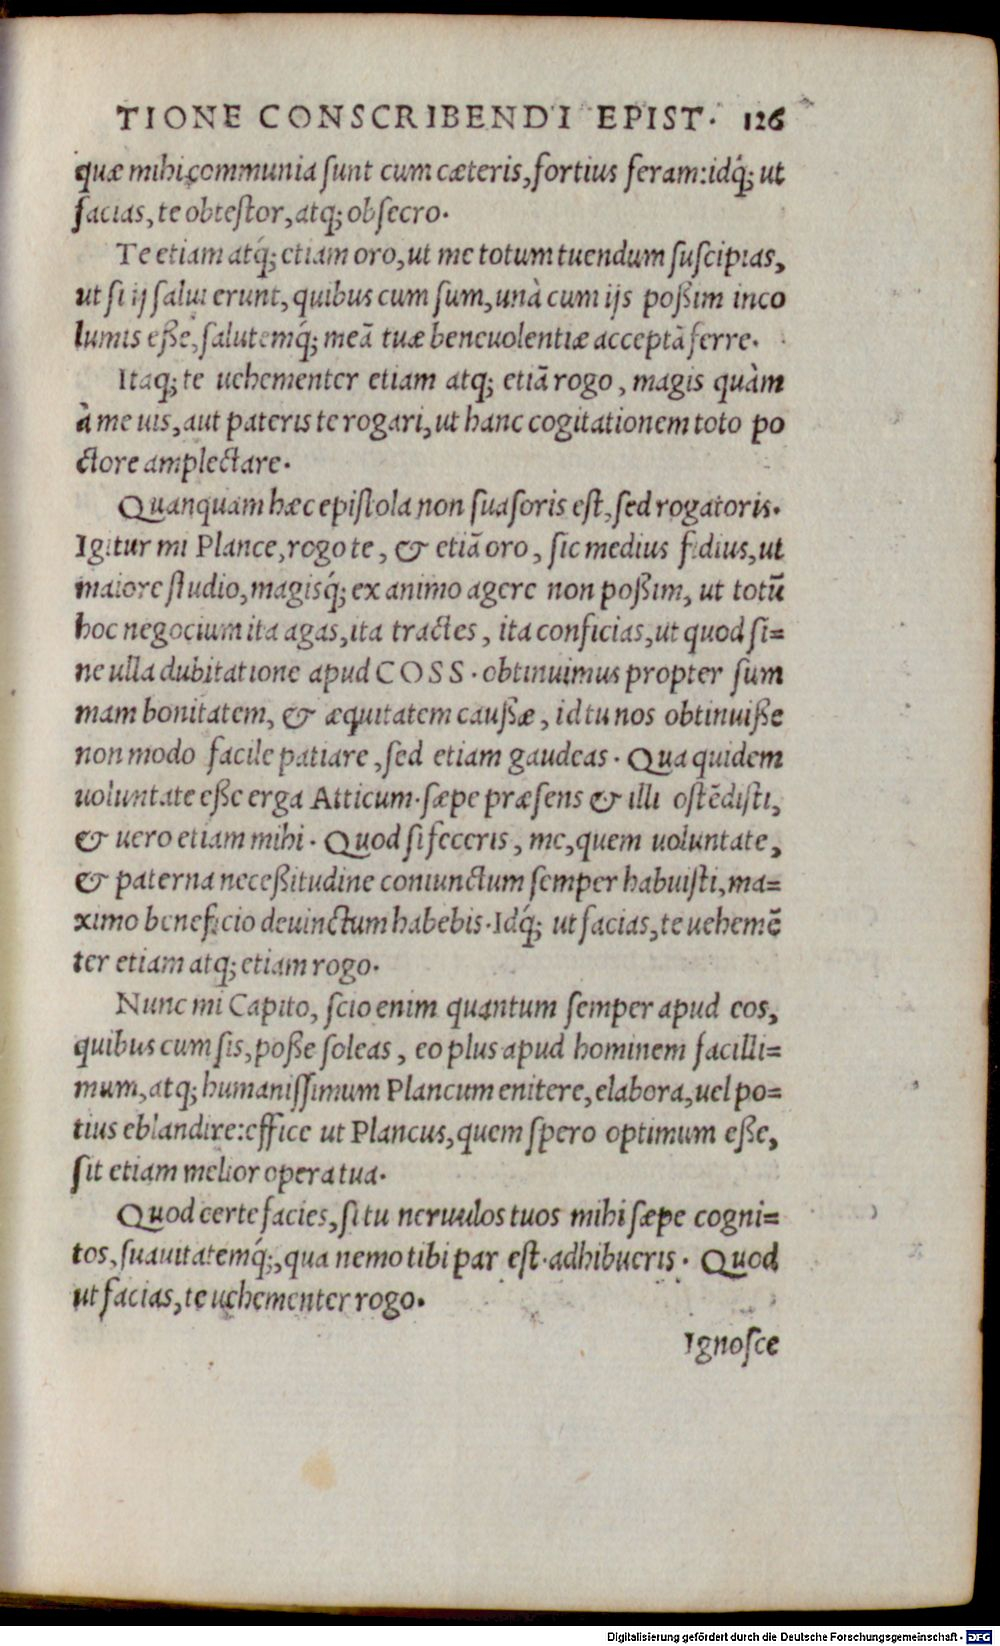 TIONE CONSCRIBENDI EPIST. 126
quæ mihi communia ſunt cum cæteris, fortius feram: idq́; ut
facias, te obteſtor, atq; obſecro.
Te etiam atq́; etiam oro, ut me totum tuendum ſuſcipias,
ut ſi ij ſalui erunt, quibus cum ſum, unà cum ijs poßim inco
lumis eße, ſalutemq́; meā tuæ beneuolentiæ acceptā ferre.
Itaq; te uehementer etiam atq; etiā rogo, magis quàm
à me uis, aut pateris te rogari, ut hanc cogitationem toto pe
ctore amplectare.
Quanquam hæc epiſtola non ſuaſoris eſt, ſed rogatoris.
Igitur mi Plance, rogo te, & etiā oro, ſic medius fidius, ut
maiore ſtudio, magisq́; ex animo agere non poßim, ut totū
hoc negocium ita agas, ita tractes, ita conficias, ut quod ſi=
ne ulla dubitatione apud COSS. obtinuimus propter ſum
mam bonitatem, & æquitatem caußæ, id tu nos obtinuiße
non modo facile patiare, ſed etiam gaudeas. Qua quidem
uoluntate eße erga Atticum. ſæpe præſens & illi oſtēdiſti,
& uero etiam mihi. Quod ſi feceris, me, quem uoluntate,
& paterna neceßitudine coniunctum ſemper habuiſti, ma=
ximo beneficio deuinctum habebis. Idq́; ut facias, te uehemē
ter etiam atq; etiam rogo.
Nunc mi Capito, ſcio enim quantum ſemper apud eos,
quibus cum ſis, poße ſoleas, eo plus apud hominem facilli=
mum, atq; humaniſſimum Plancum enitere, elabora, uel po=
tius eblandire: effice ut Plancus, quem ſpero optimum eße,
ſit etiam melior opera tua.
Quod certe facies, ſi tu neruulos tuos mihi ſæpe cogni=
tos, ſuauitatemq́;, qua nemo tibi par eſt. adhibueris. Quod
ut facias, te uehementer rogo.
Ignoſce
Digitalisierung gefördert durch die Deutsche Forschungsgemeinschaft - DFG